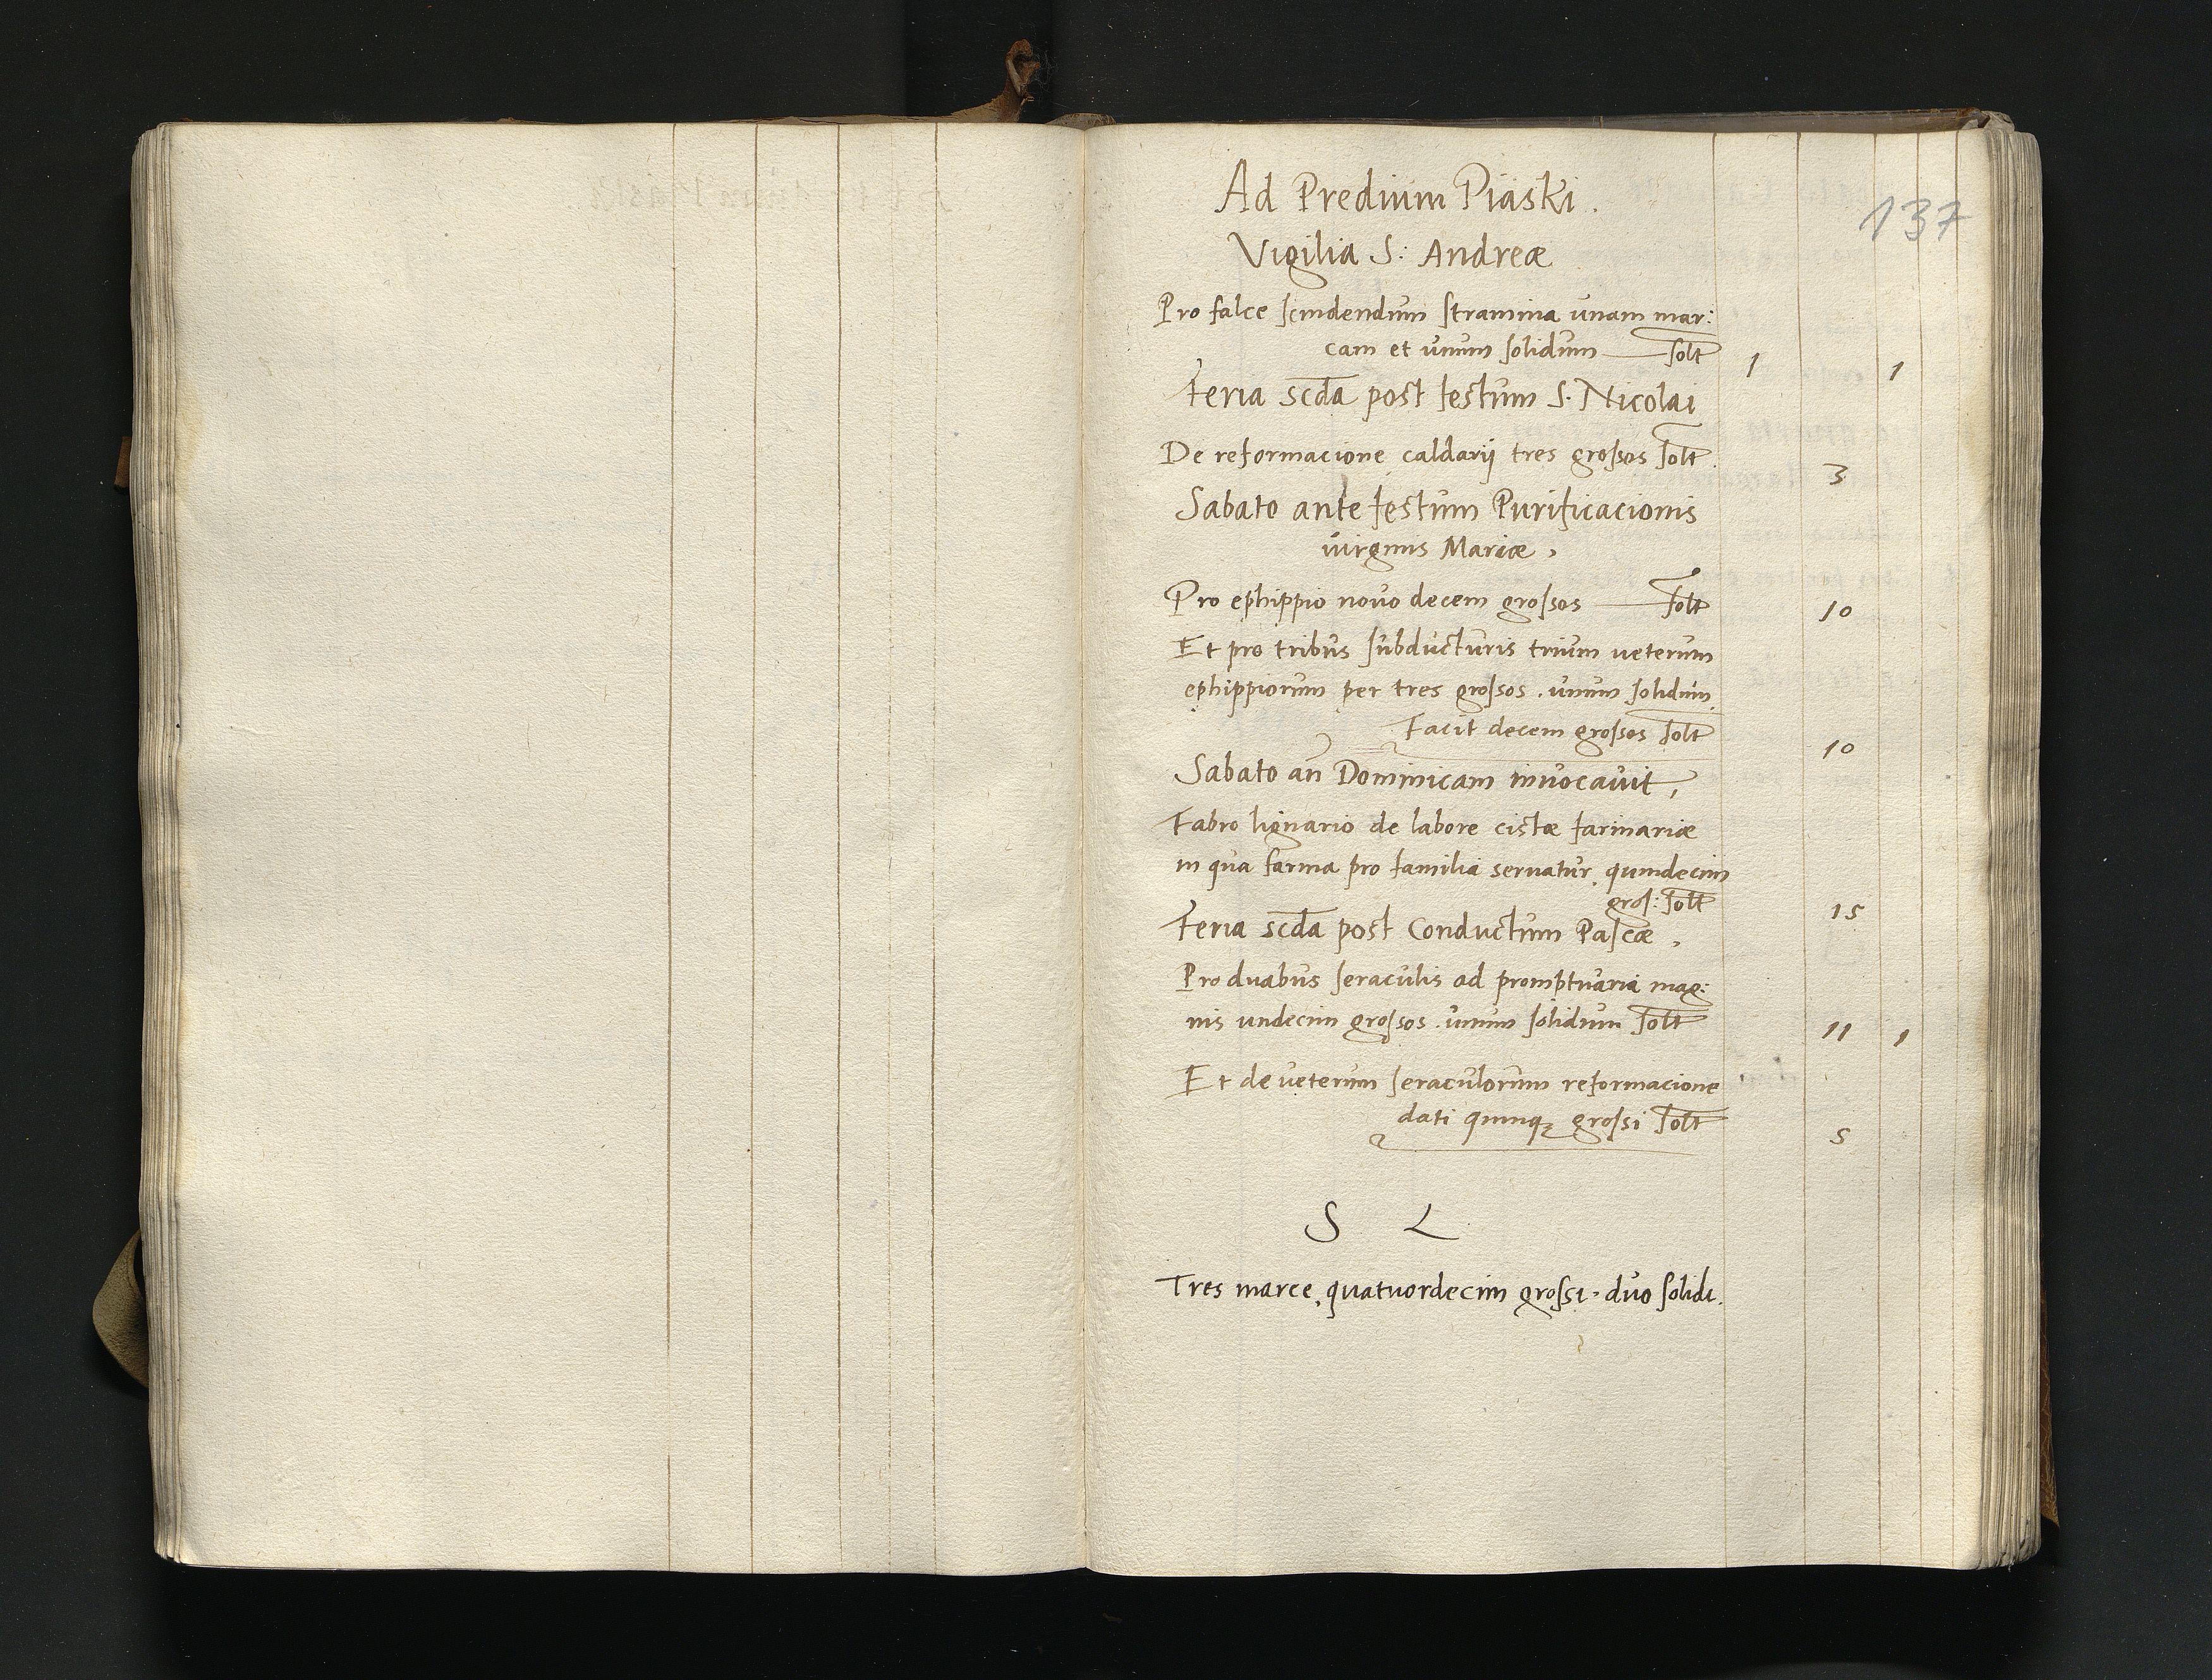 137
Ad Predium Piaski.
Vigilia S: Andreæ
Pro falce scindendum stramina unam mar:
cam et unum solidum solt 1 1
Feria scda post festum S. Nicolai
De reformacione caldarij tres grossos solt 3
Sabato ante festum Purificacionis
virginis Mariæ,
Pro ephippio novo decem grossos solt 10
Et pro tribus subducturis trium veterum
ephippiorum per tres grossos. unum solidum,
Facit decem grossos solt 10
Sabato an Dominicam invocavit,
Fabro lignario de labore cistæ farinariæ
in qua farina pro familia servatur, quindecim
gros: solt 15
Feria scda post Conductum Pascæ,
Pro duabus seraculis ad promptuaria mag:
nis undecim grossos. unum solidum solt 11 1
Et de veterum seraculorum reformacione
dati quinq; grossi solt 5
S L
Tres marce, quatuordecim grossi. duo solidi.